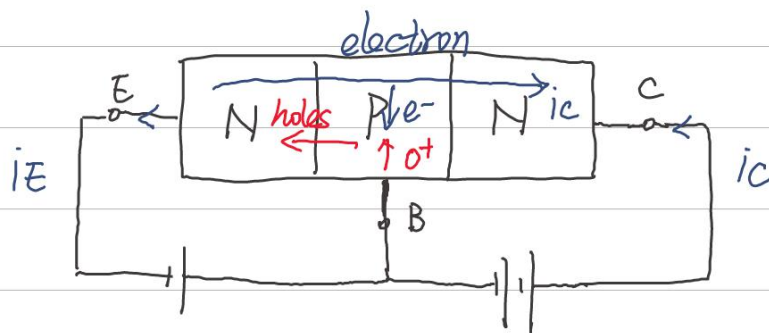 electron
E
C
N holes P e- N ic
o+
iE
ic
B